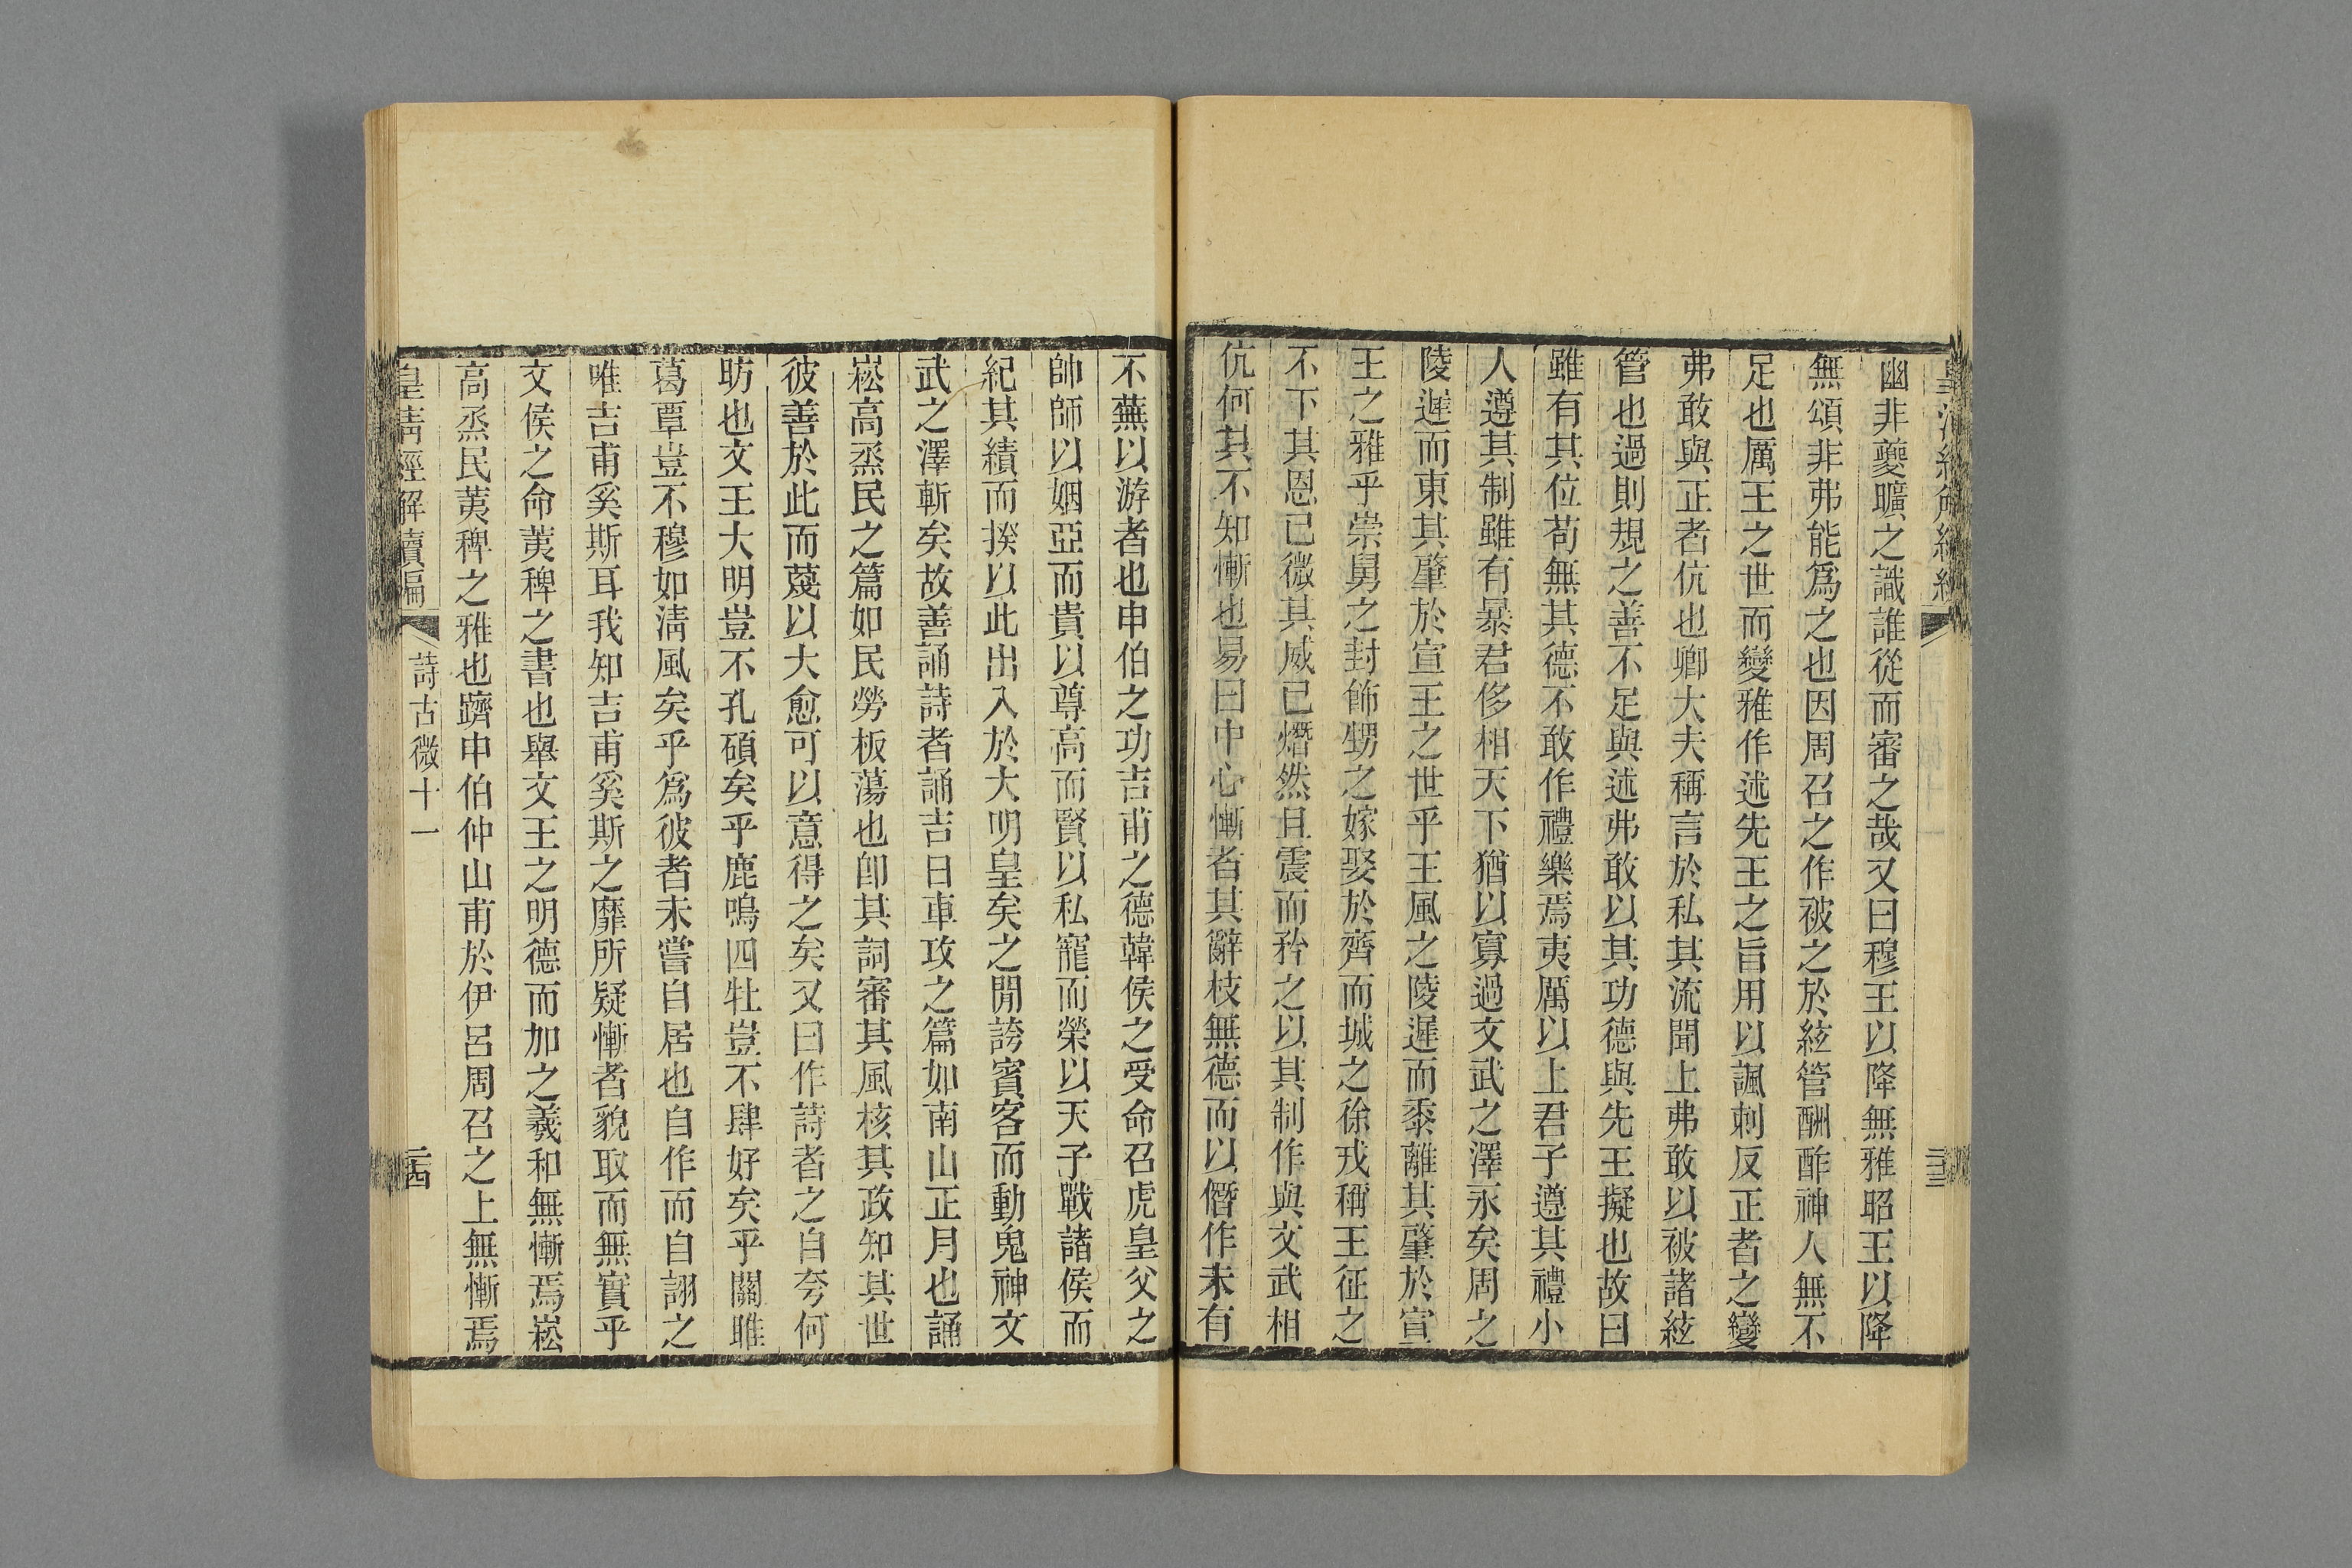 幽非夔曠之識誰從而審之哉又曰穆王以降無雅昭王以降
無頌非弗能爲之也因周召之作被之於絃管酬酢神人無不
足也厲王之世而變雅作述先王之旨用以諷刺反正者之變
弗敢與正者伉也卿大夫稱言於私其流聞上弗敢以被諸絃
管也過則規之善不足與述弗敢以其功德與先王擬也故曰
雖有其位苟無其德不敢作禮樂焉夷厲以上君子遵其禮小
人遵其制雖有暴君侈相天下猶以寡過文武之澤永矣周之
陵遲而東其肇於宣王之世乎王風之陵遲而黍離其肇於宣
王之雅乎崇舅之封飾甥之嫁娶於齊而城之徐戎稱王征之
不下其恩已微其威已熸然且震而矜之以其制作與文武相
伉何其不知慚也易曰中心慚者其辭枝無德而以僭作未有
不蕪以游者也申伯之功吉甫之德韓侯之受命召虎皇父之
帥師以姻亞而貴以尊高而賢以私寵而榮以天子戰諸侯而
紀其績而揆以此出入於大明皇矣之閒誇賓客而動鬼神文
武之澤斬矣故善誦詩者誦吉日車攻之篇如南山正月也誦
崧高烝民之篇如民勞板蕩也卽其詞審其風核其政知其世
彼善於此而蔑以大愈可以意得之矣又曰作詩者之自夸何
昉也文王大明豈不孔碩矣乎鹿鳴四牡豈不肆好矣乎關雎
葛覃豈不穆如淸風矣乎爲彼者未嘗自居也自作而自詡之
唯吉甫奚斯耳我知吉甫奚斯之靡所疑慚者貌取而無實乎
文侯之命荑稗之書也舉文王之明德而加之羲和無慚焉崧
高烝民荑稗之雅也躋申伯仲山甫於伊呂周召之上無慚焉
皇淸經解續編
詩古微十一
二十四